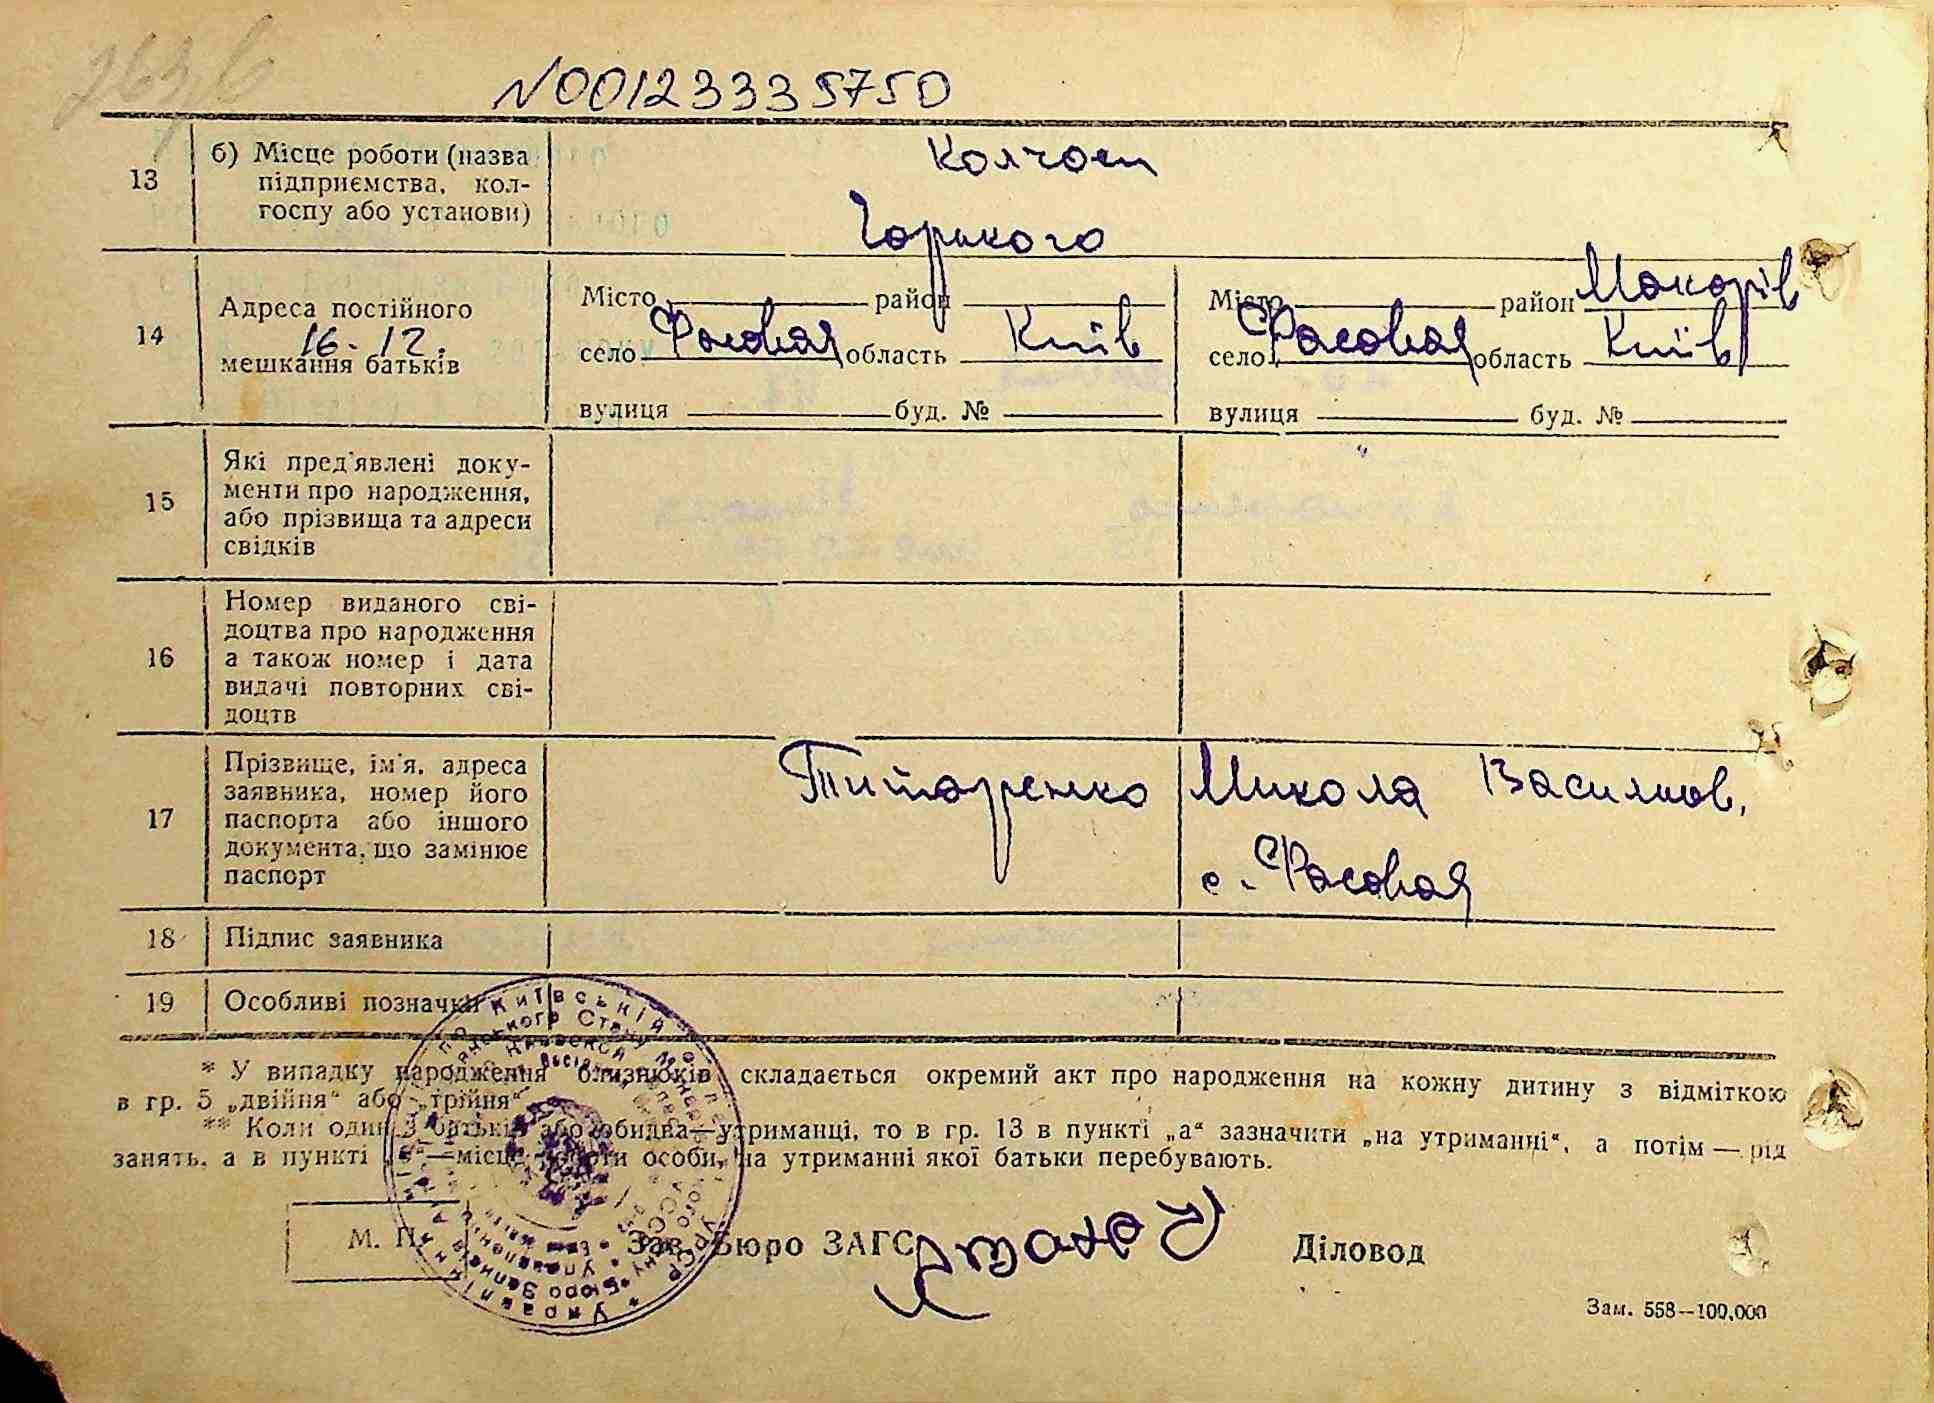 263/6
N00123335750
13 б) Місце роботи (назва підприємства, кол-
госпу або установи) Колгосп
Горького
14 Адреса постійного
16-12.
мешкання батьків
Місто район
село Фасовая область Київ
вулиця буд. №
Місто район Макарів
село Фасовая область Київ
вулиця буд. №
15 Які пред'явлені доку-
менти про народження,
або прізвища та адреси
свідків
16 Номер виданого сві-
доцтва про народження
а також номер і дата
видачі повторних сві-
доцтв
17 Прізвище, ім'я, адреса
заявника, номер його
паспорта або іншого
документа, що замінює
паспорт
Титаренко Микола Василов.
с. Фасовая
18 Підпис заявника
19 Особливі позначки
* У випадку народження близнюків складається окремий акт про народження на кожну дитину з відміткою
в гр. 5 „двійня“ або „трійня“
** Коли один з батьків або обидва—утриманці, то в гр. 13 в пункті „а“ зазначити „на утриманні“, а потім — рід
занять, а в пункті „б“—місце роботи особи, на утриманні якої батьки перебувають.
М. П. Зав. Бюро ЗАГС Діловод
Зам. 558—100.000